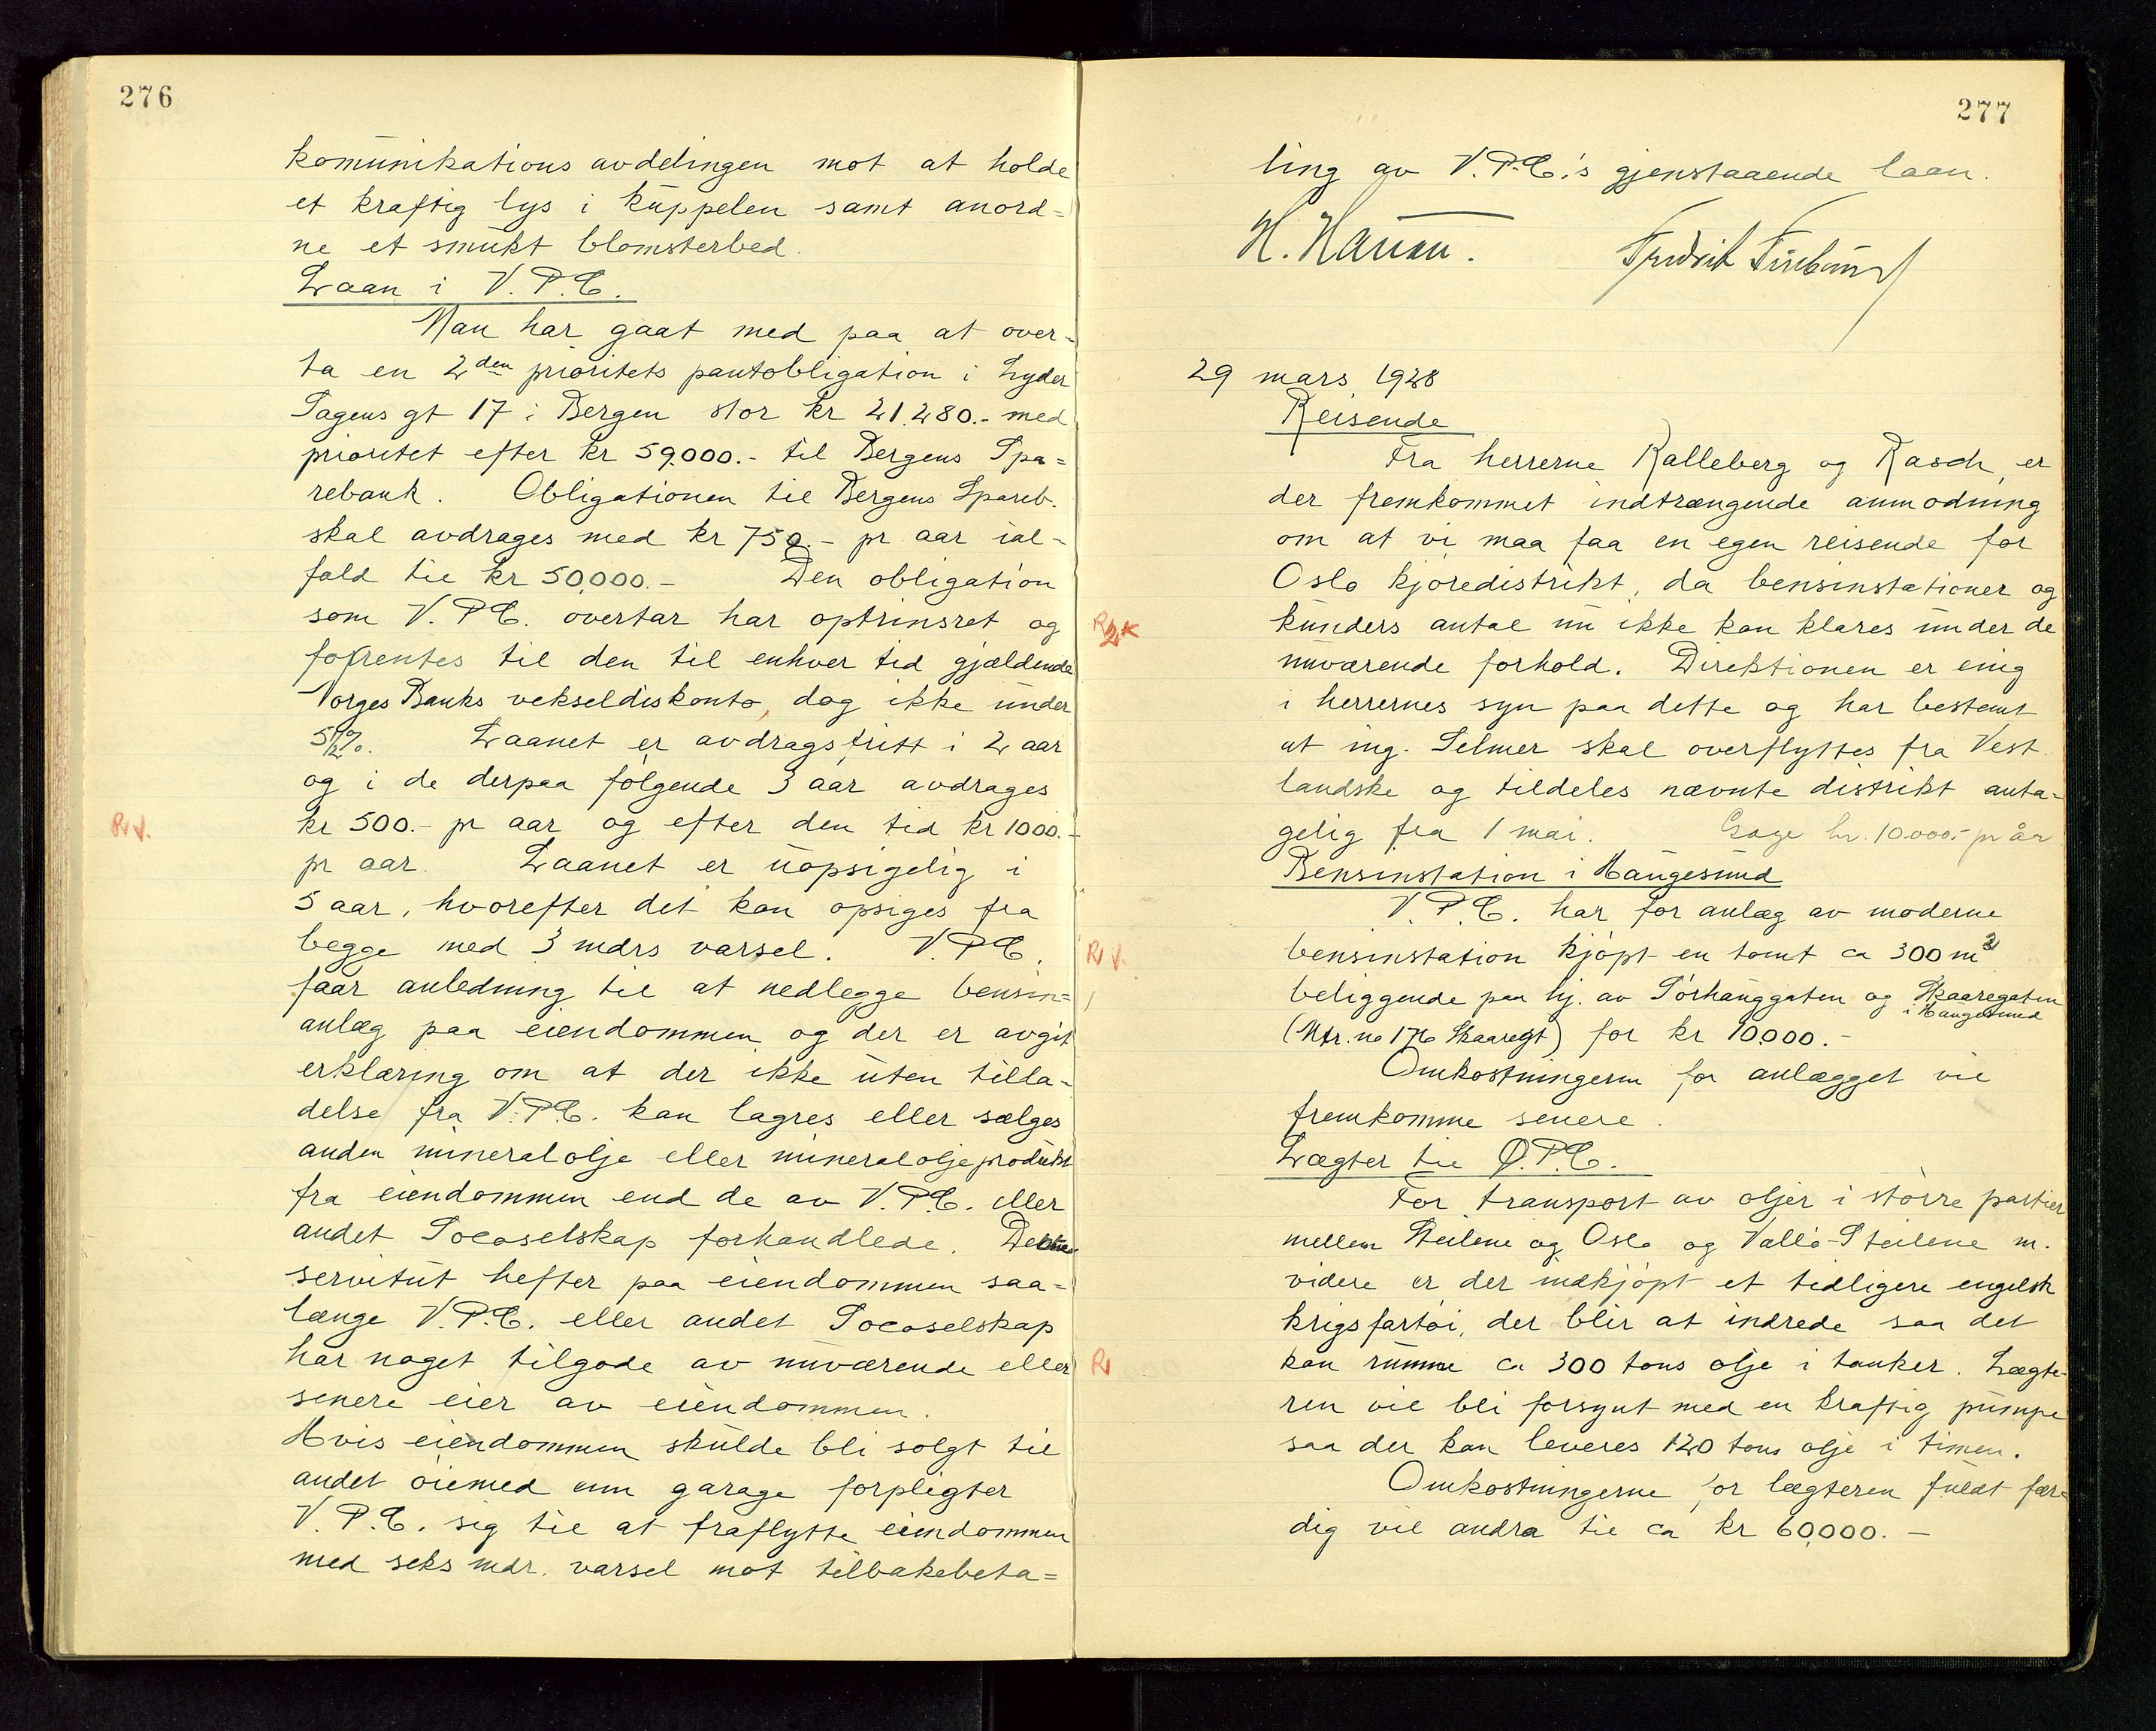 276
komunikations avdelingen mot at holde
et kraftig lys i kuppelen samt anord=
ne et smukt blomsterbed.
Laan i V.P.C.
Man har gaat med paa at over-
ta en 2den prioritets pantobligation i Lyder
Sagens gt 17 i Bergen stor kr 21.280.- med
prioritet efter kr 59.000.- til Bergens Spa=
rebank. Obligationen til Bergens Spareb.
skal avdrages med kr 750.- pr aar ial-
fald til kr 50.000.- Den obligation
som V.P.C. overtar har optrinsret og
forrentes til den til enhver tid gjældende
Norges Banks vekseldiskonto, dog ikke under
5 1/2 %. Laanet er avdragsfritt i 2 aar
og i de derpaa følgende 3 aar avdrages
Rv.
kr 500.- pr aar og efter den tid kr 1000.-
pr aar. Laanet er uopsigelig i
5 aar, hvorefter det kan opsiges fra
begge med 3 mdrs varsel. V.P.C.
faar anledning til at nedlegge bensin=
anlæg paa eiendommen og der er avgit
erklæring om at der ikke uten tilla-
delse fra V.P.C. kan lagres eller sælges
anden mineralolje eller mineraloljeprodukt
fra eiendommen end de av V.P.C. eller
andet Socoselskap forhandlede. Denne
servitut hefter paa eiendommen saa=
længe V.P.C. eller andet Socoselskap
har noget tilgode av nuværende eller
senere eier av eiendommen.
Hvis eiendommen skulde bli solgt til
andet øiemed enn garage forpligter
V.P.C. sig til at fraflytte eiendommen
med seks mdr. varsel mot tilbakebeta=
277
ling av V.P.C.'s gjenstaaende laan.
H. Hansen. Fredrik
29 mars 1928
Reisende
Fra herrerne Kalleberg og Rasch er
der fremkommet indtrængende anmodning
om at vi maa faa en egen reisende for
Oslo kjøredistrikt, da bensinstationer og
kunders antal nu ikke kan klares under de
nuværende forhold. Direktionen er enig
i herrernes syn paa dette og har bestemt
at ing. Selmer skal overflyttes fra Vest
landske og tildeles nævnte distrikt anta-
gelig fra 1 mai. Gage kr. 10.000.- pr år
Bensinstation i Haugesund
V.P.C. har for anlæg av moderne
Rv.
bensinstation kjøpt en tomt ca 300 m2
beliggende paa hj. av Sørhauggaten og Skaaregaten
i Haugesund
(Mtr. no 176 Skaaregt) for kr 10.000.-
Omkostningerne for anlægget vil
fremkomme senere.
Lægter til Ø.P.C.
For transport av oljer i større partier
mellem Steilene og Oslo og Vallø-Steilene m.
videre er der indkjøpt et tidligere engelsk
krigsfartøi, der blir at indrede saa det
R
kan rumme ca 300 tons olje i tanker. Lægte-
ren vil bli forsynt med en kraftig pumpe
saa der kan leveres 120 tons olje i timen.
Omkostningerne for lægteren fuldt fær=
dig vil andra til ca kr 60.000.-